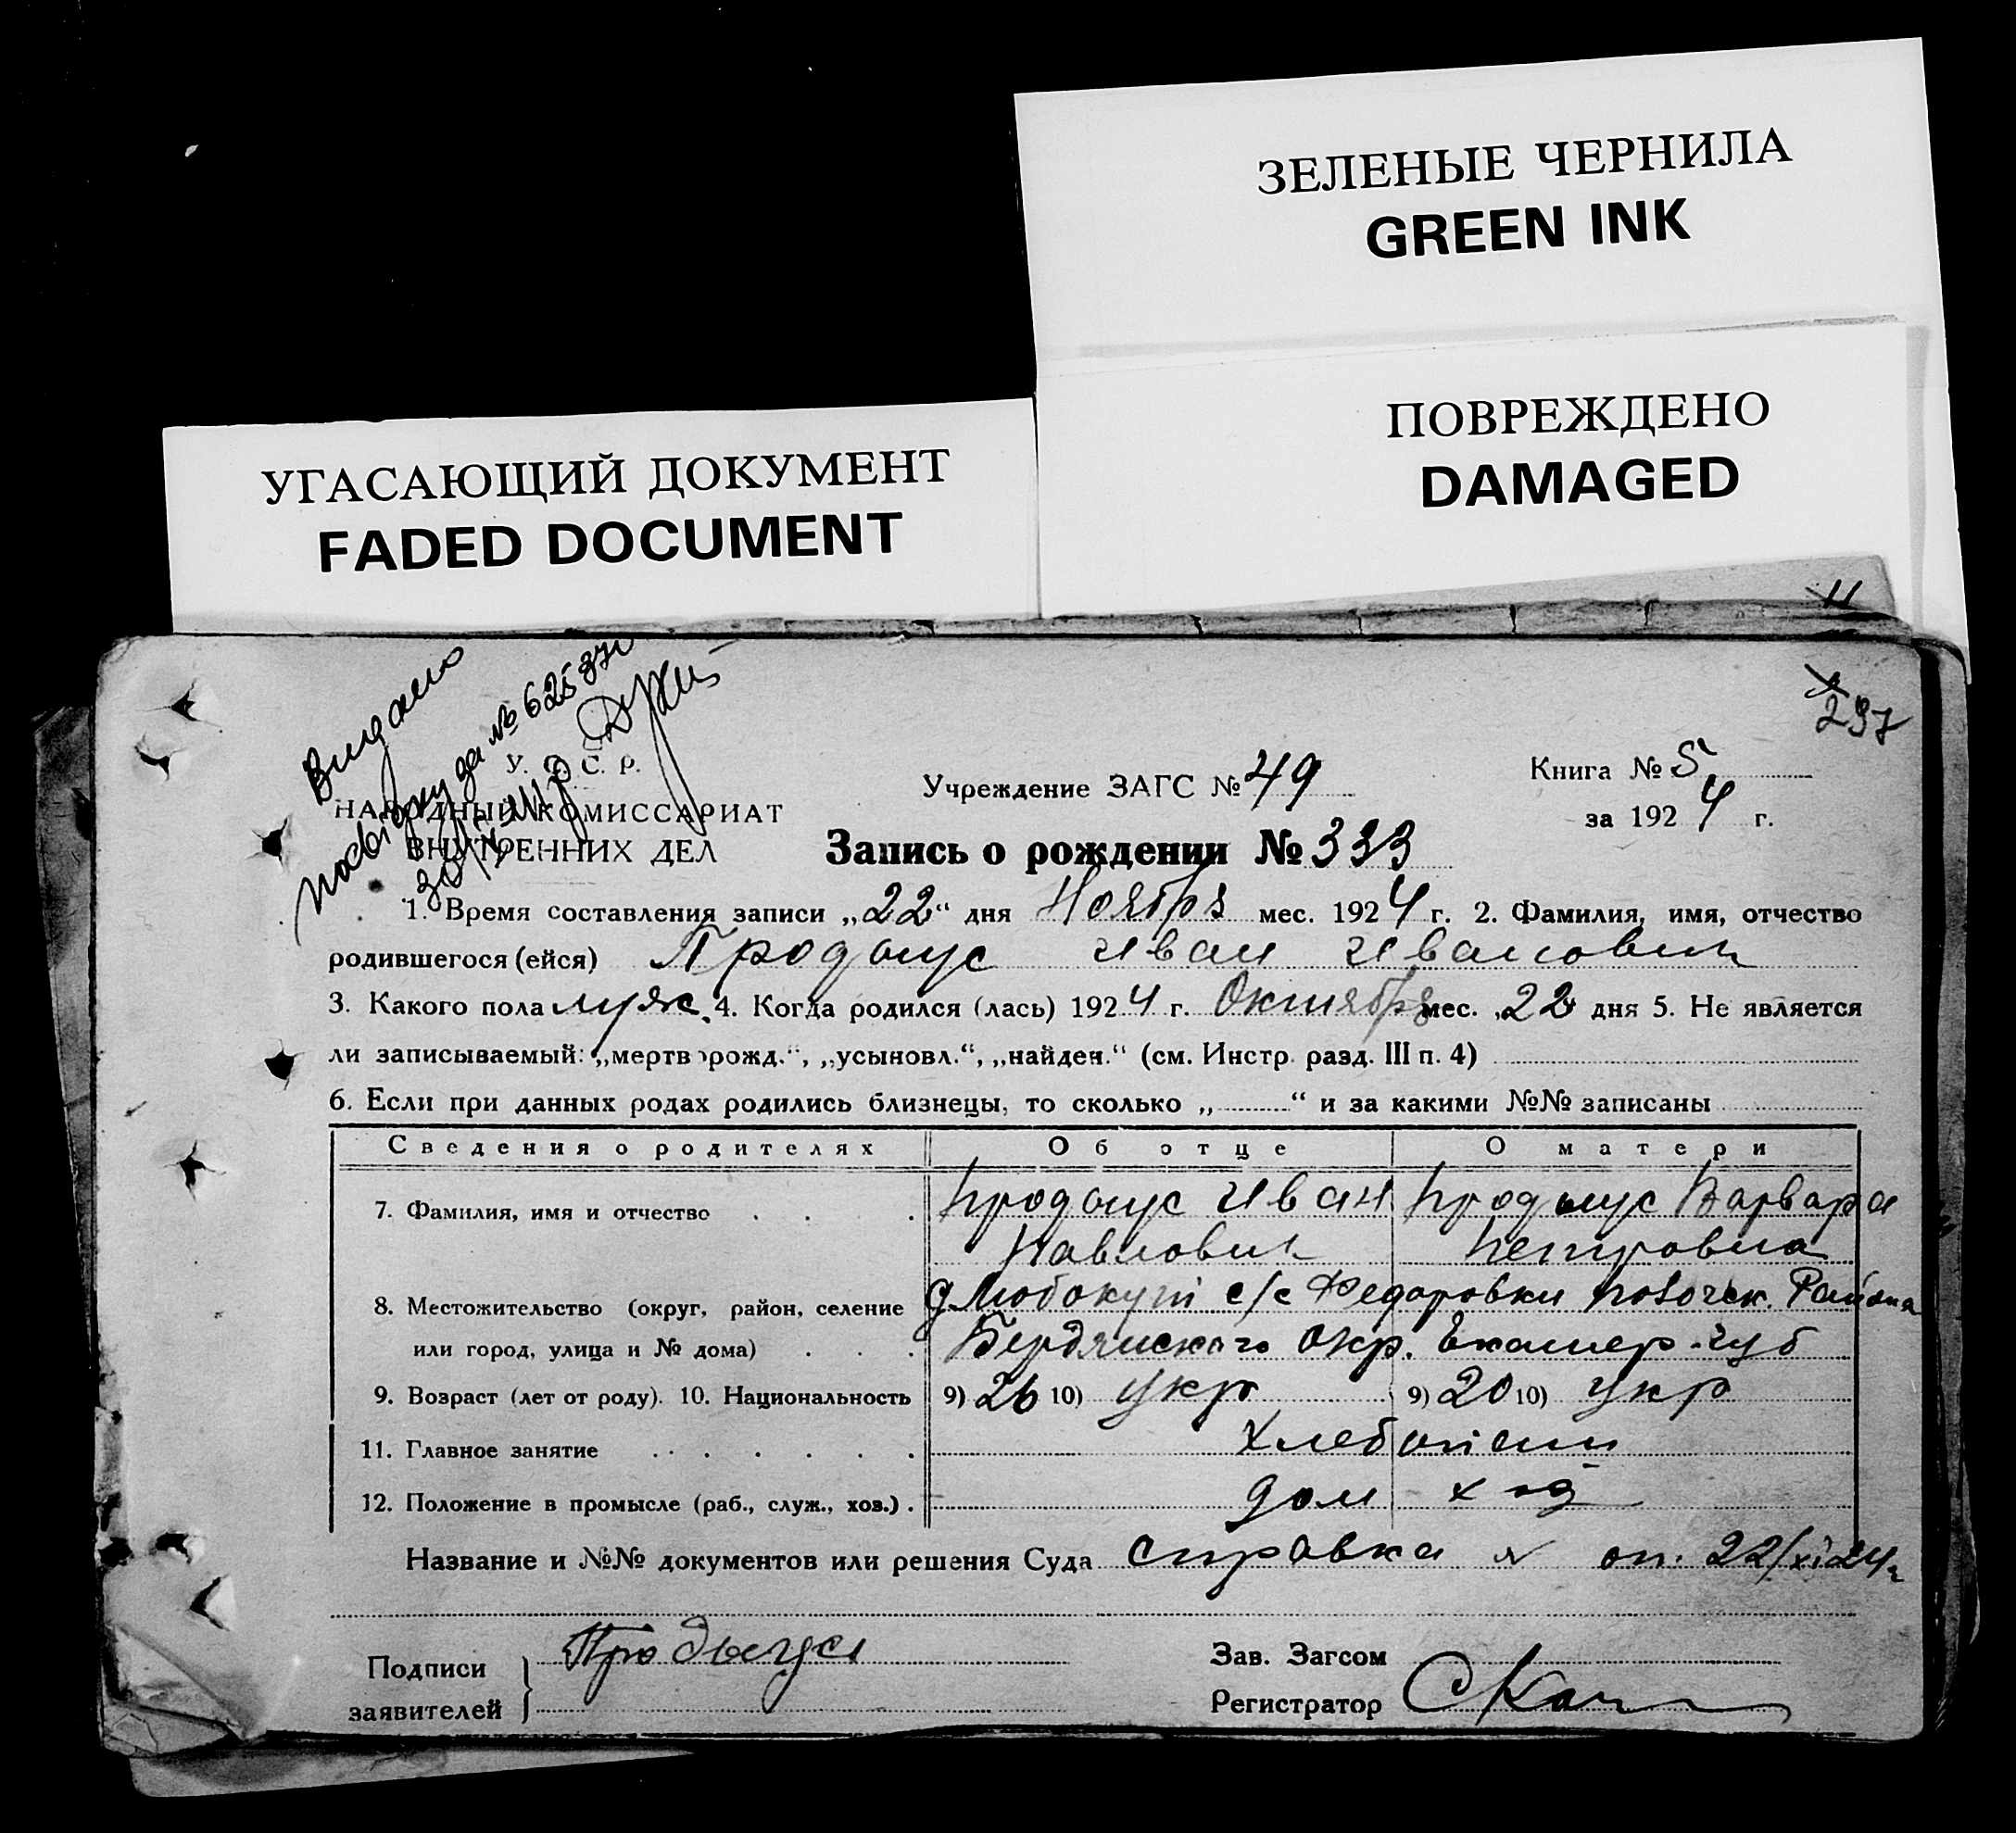 ЗЕЛЕНЫЕ ЧЕРНИЛА
GREEN INK
ПОВРЕЖДЕНО
DAMAGED
УГАСАЮЩИЙ ДОКУМЕНТ
FADED DOCUMENT
11
237
Видано
посвідку за № 62537
У. С. С. Р.
НАРОДНЫЙ КОМИССАРИАТ
ВНУТРЕННИХ ДЕЛ
Учреждение ЗАГС № 49
Книга № 5
за 1924 г.
Запись о рождении № 333
1. Время составления записи „22“ дня Ноября мес. 1924 г. 2. Фамилия, имя, отчество
родившегося (ейся) Продыус Иван Иванович
3. Какого пола муж. 4. Когда родился (лась) 1924 г. Октября мес. „22 дня 5. Не является
ли записываемый: „мертворожд.“, „усыновл.“, „найден.“ (см. Инстр. разд. III п. 4)
6. Если при данных родах родились близнецы, то сколько „ “ и за какими №№ записаны
Сведения о родителях Об отце О матери
7. Фамилия, имя и отчество Продыус Иван Продыус Варвара
Павлович Петровна
8. Местожительство (округ, район, селение д. Любокут с/с Федоровки Района
или город, улица и № дома) Бердянского Окр. Екатер. губ
9. Возраст (лет от роду). 10. Национальность 9) 26 10) укр 9) 20 10) укр
11. Главное занятие Хлебопаш
12. Положение в промысле (раб., служ., хоз.) дом хоз
Название и №№ документов или решения Суда справка № от 22/XI 24 г
Подписи заявителей Продыус
Зав. Загсом
Регистратор